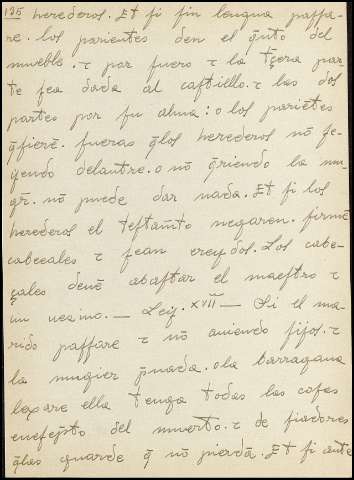 135 herederos. Et si sin lengua passa-
re. los parientes den el q̄nto del
mueble. τ por fuero τ la t̄çera par-
te sea dada al castiello. τ las dos
partes por su alma: o los pariētes
q̄sierē. fueras q̄los herederos nō se-
yendo delantre. o nō q̄riendo la mu-
gr̄. nō puede dar nada. Et si los
herederos el testam̄to negaren. firmē
cabeceales τ sean creydos. Los cabe-
çales denē abastar el maestro τ
un uezino. — Leij. XVIII — Si el ma-
rido passare τ nō auiendo fijos. τ
la mugier p̄nada. o la barragana
lexare ella tenga todas las cosas
en efej̄to del muerto. τ de fiadores
q̄las guarde q̄ nō pierdā. Et si ante